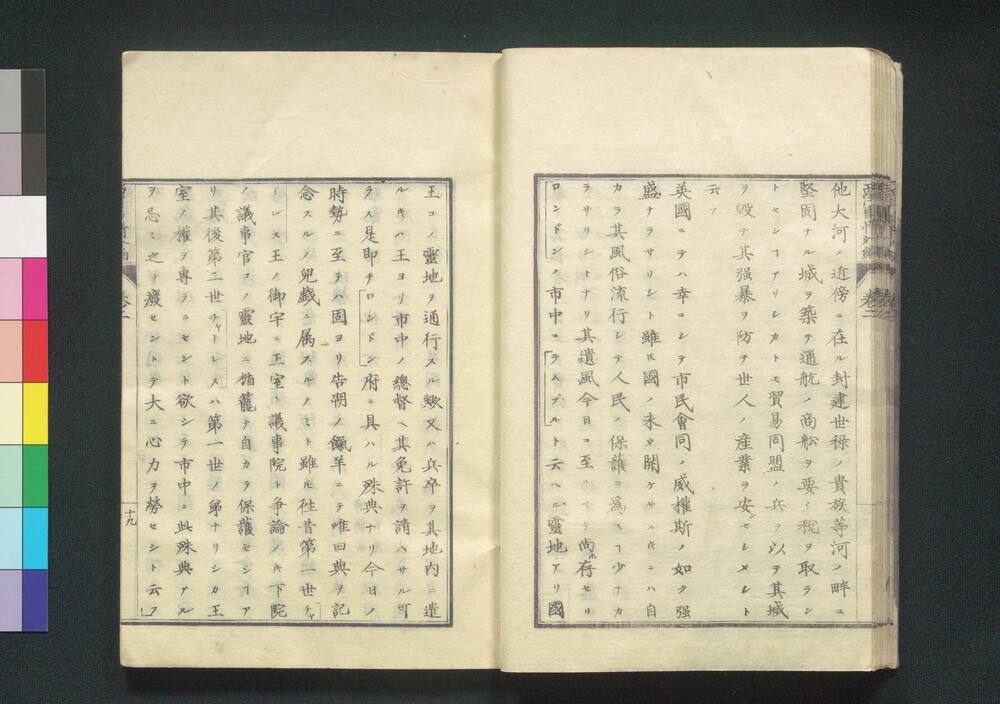 他大河ノ近傍ニ在ル封建世禄ノ貴族等河ノ畔ニ
堅固ナル城ヲ築キ通航ノ商舩ヲ要シ税ヲ取ラン
トセシヿアリシカトモ貿易同盟ノ兵ヲ以テ其城
ヲ毀チ其强暴ヲ防キ世人ノ産業ヲ安ンセシメシト
云フ
英國ニテハ幸ニシテ市民會同ノ威權斯ノ如ク强
盛ナラサリシト雖𪜈國ノ未タ開ケサルキニハ自
カラ其風俗流行シテ人民ノ保護ヲ爲スヿ少ナカ
ラサリシトナリ其遺風今日ニ至ルマテ尚ホ存セリ
ロンドンノ市中ニラムブルト云ハル靈地アリ國
王コノ靈地ヲ通行スル歟又ハ兵卒ヲ其地内ニ遣
ルキハ王ヨリ市中ノ總督ヘ其免許ヲ請ハサル可
ラス是即チロンドン府ニ具ハル殊典ナリ今日ノ
時勢ニ至テハ固ヨリ告朔ノ餼羊ニテ唯旧典ヲ記
念スルノ兒戯ニ属スルノミト雖𪜈徃昔第一世チャ
ーレス王ノ御宇ニ王室ト議事院ト争論ノキ下院
ノ議事官コノ靈地ニ楯籠テ自カラ保護セシヿア
リ其後第二世チャーレスハ第一世ノ第ナリシカ王
室ノ權ヲ專ラニセント欲シテ市中ニ此殊典アル
ヲ忌ミ之ヲ癈セントテ大ニ心力ヲ勞セシト云フ
十九